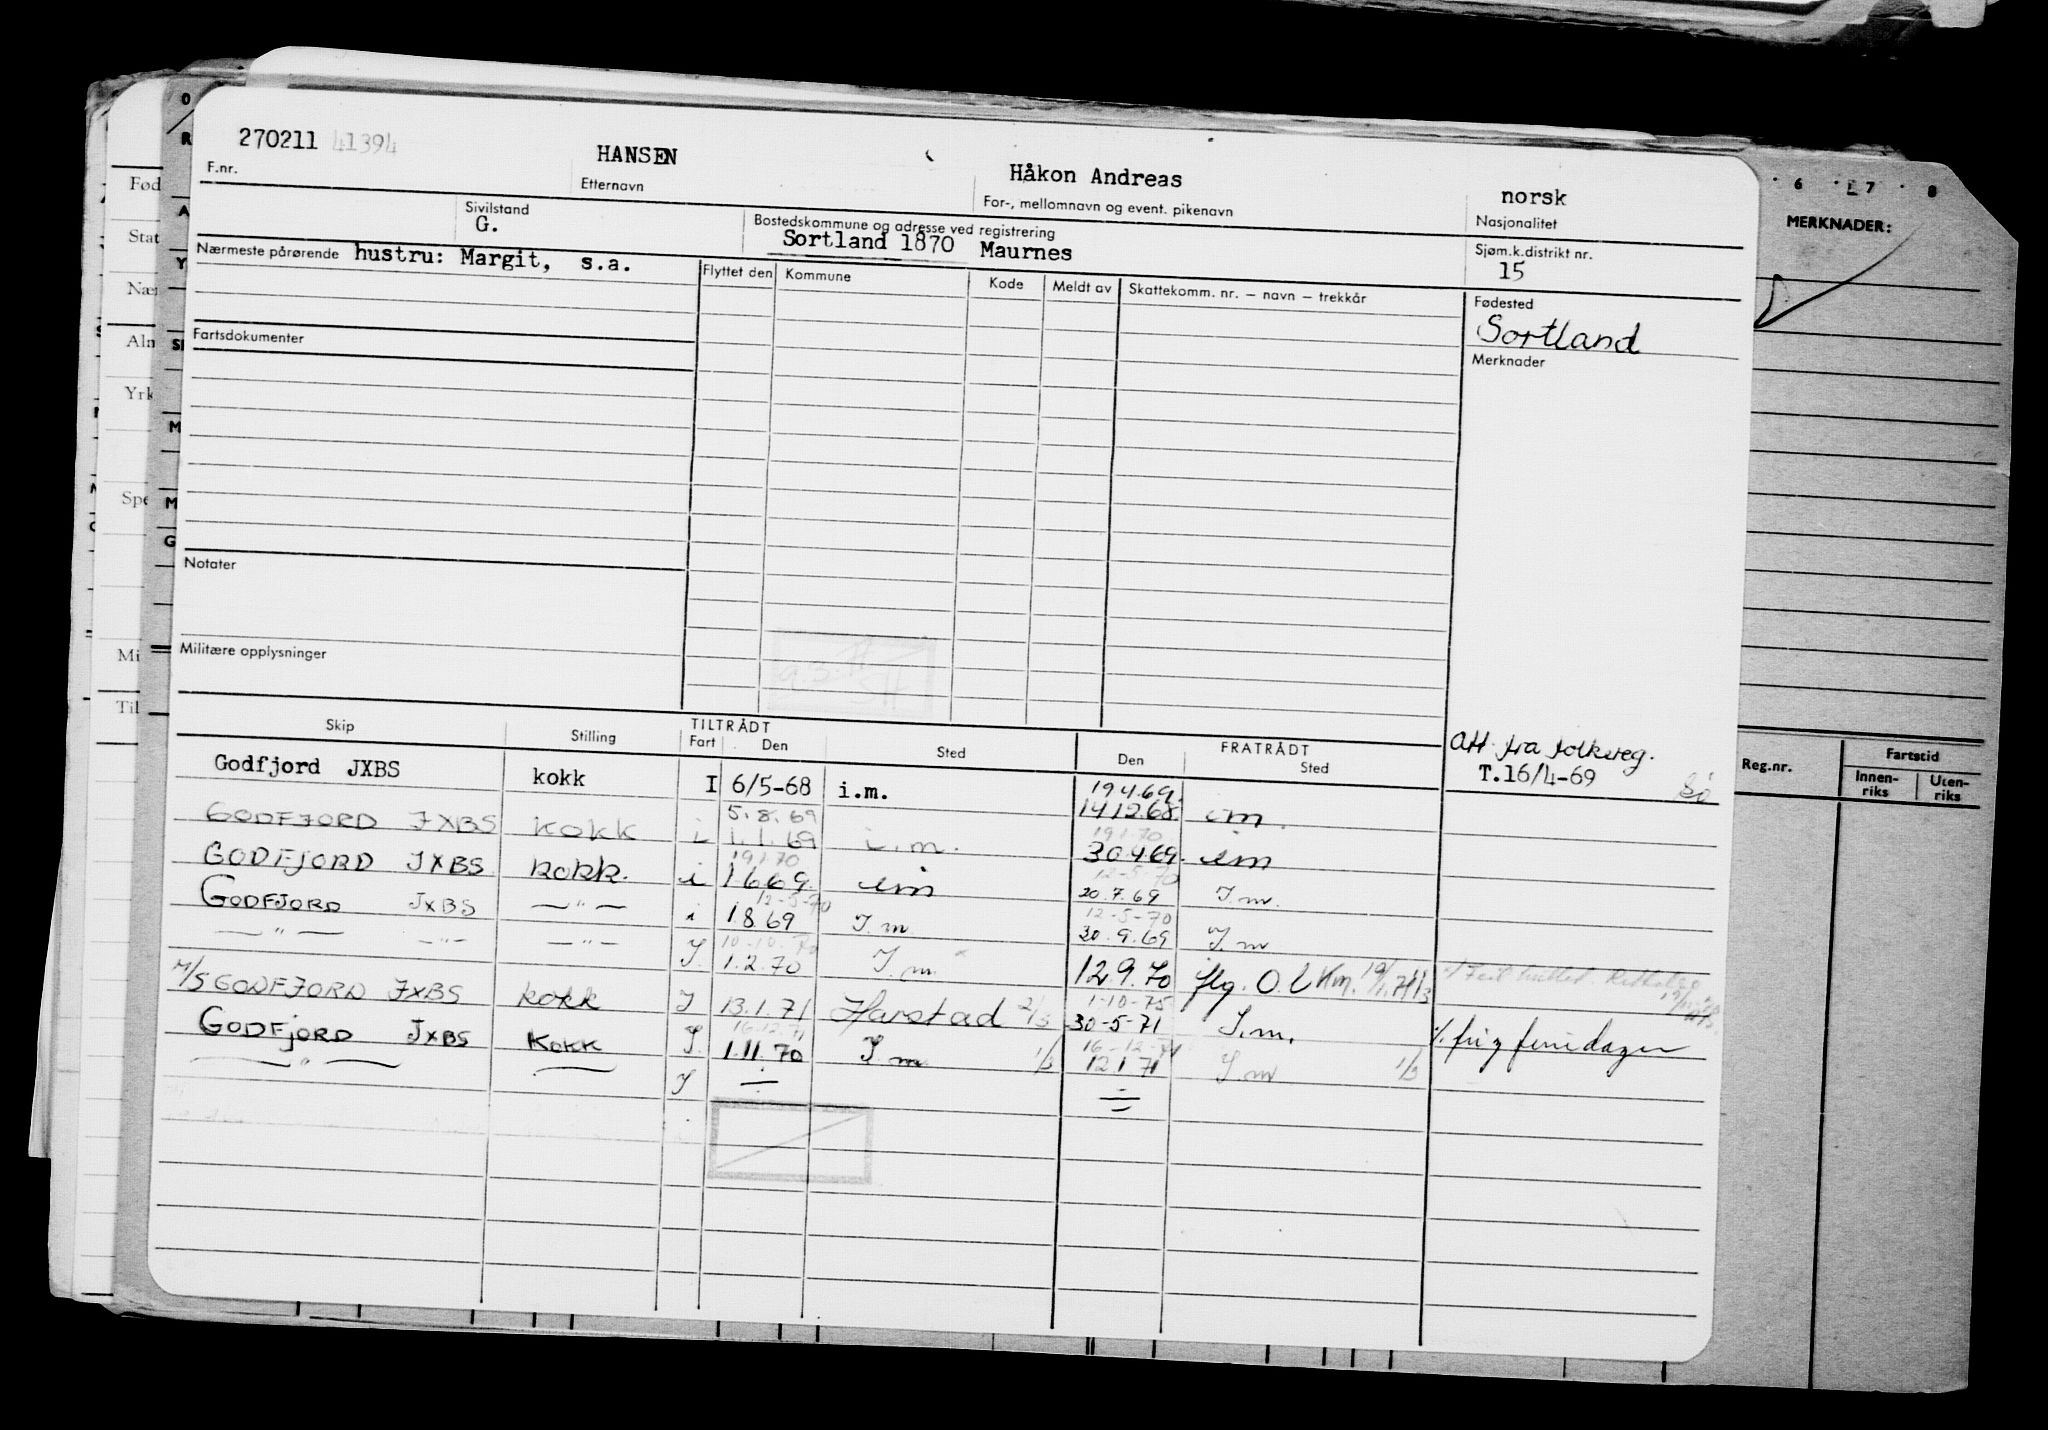 270211 41394
HANSEN
Håkon Andreas
norsk
F.nr.
Etternavn
For-, mellomnavn og event. pikenavn
Nasjonalitet
Sivilstand
G.
Bostedskommune og adresse ved registrering
Sortland 1870 Maurnes
Sjøm.k.distrikt nr.
15
Nærmeste pårørende hustru: Margit, s.a.
Flyttet den Kommune Kode Meldt av Skattekomm. nr. — navn — trekkår
Fødested
Sortland
Merknader
Fartsdokumenter
Notater
Militære opplysninger
Skip Stilling TILTRÅDT Fart Den Sted FRATRÅDT Den Sted
Att. fra folkereg.
T.16/4-69
Godfjord JXBS kokk I 6/5-68 i.m. 19.4.69.
14.12.68. im.
5.8.69
GODFJORD JXBS kokk i 1.1.69 i.m. 19.1.70
30.4.69. im
19.1.70
GODFJORD JXBS kokk. i 1.6.69. im 12-5-70
20.7.69 I.m.
12-5-70
GODFJORD JXBS —"— i 1.8.69 I.m. 12-5-70
30.9.69 I.m
10-10-70
—"— —"— —"— I. 1.2.70 I.m. 12.9.70 flg. O.L
M/S GODFJORD JXBS kokk I 13.1.71 Harstad 2/3 1-10-75
30-5-71 I.m. % fri g feriedager
16.12.71
GODFJORD JXBS Kokk I. 1.11.70 I.m 1/3 16-12-71
12.1.71 I.m 1/3
—"— I
MERKNADER:
6 7 8
Reg.nr.
Fartstid
Innen-
riks
Uten-
riks
Fød
Stat
Nær
Aln
Yrk
Spe
Mi
Til